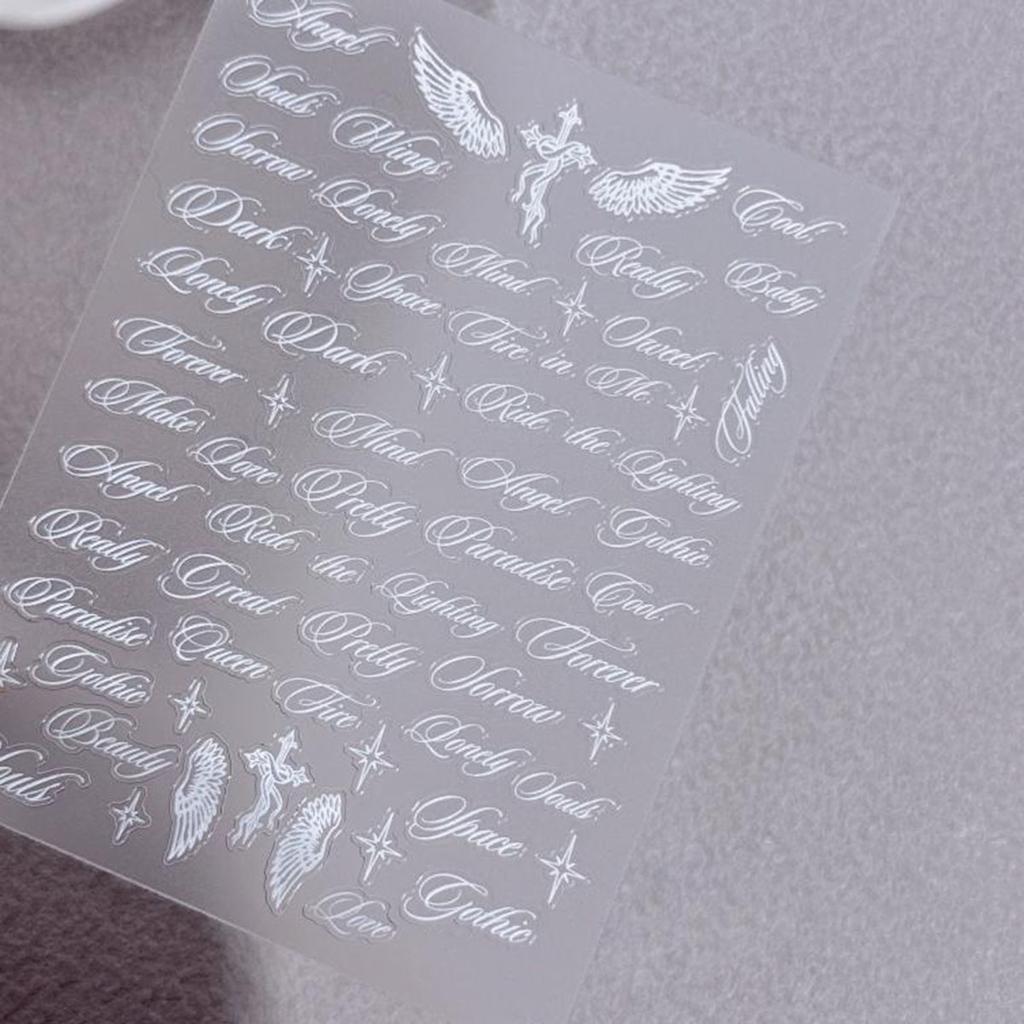 Angel
Souls Wings
Cool
Sorrow Lonely
Really Baby
Dark Mind
Lonely Space Sweet
Fire in Me
Falling
Forever Dark
Ride the Lighting
Make Mind Angel Gothic
Angel Love Pretty Paradise Cool
Really Ride the Lighting Forever
Paradise Great Pretty Sorrow
Gothic Queen Fire Lonely Souls
Beauty Space
Souls Love Gothic